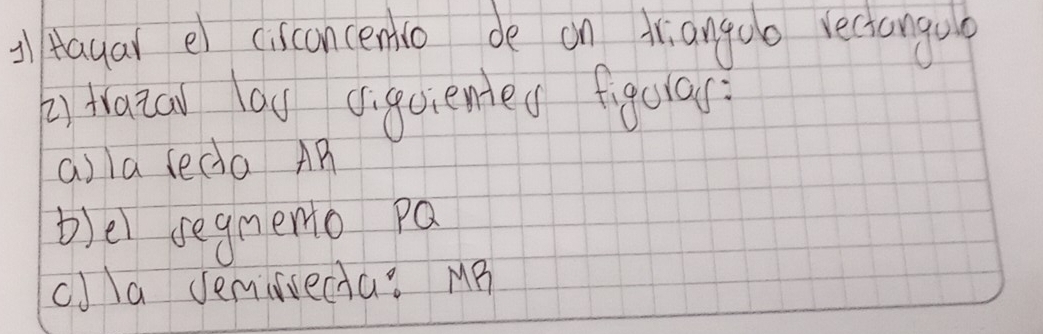 1) Hayar el circoncentro de un triangulo rectangulo
2) trazar las siguientes figuras:
a) la recta AB
b) el segmento PQ
c) la semirrecta: MB